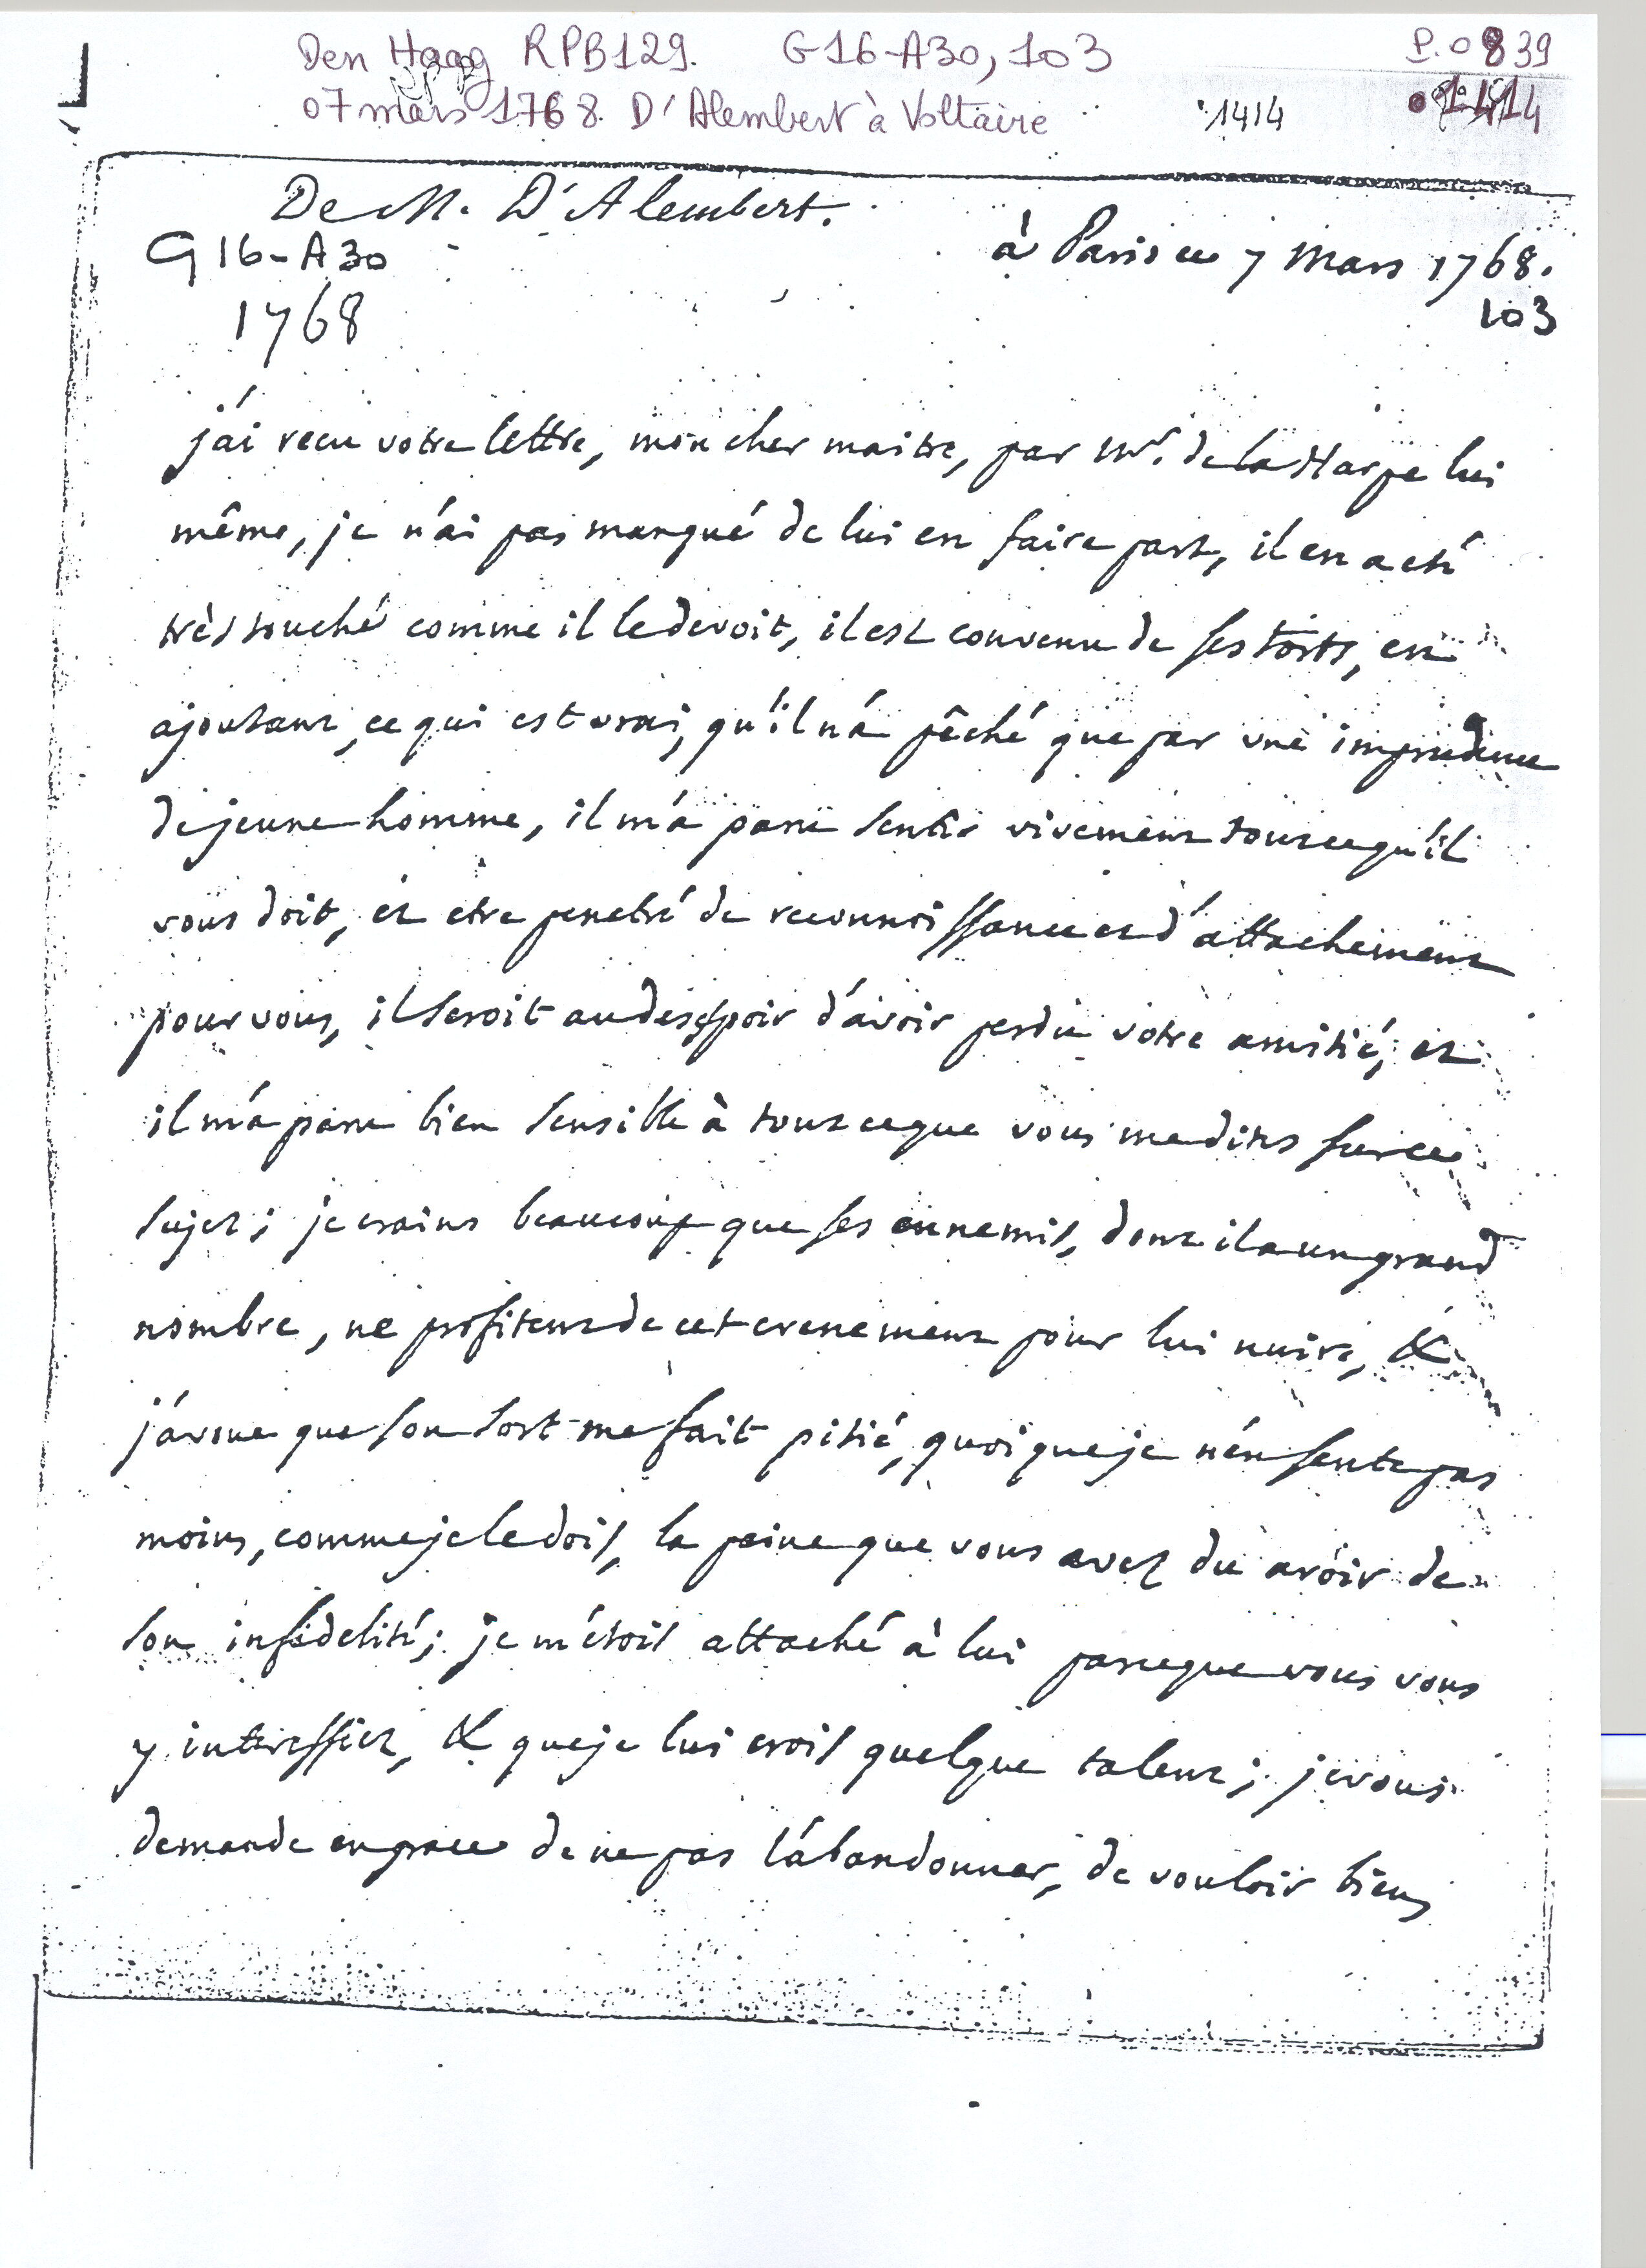 Den Haag RPB129. G16-A30, 103 P. 0839
07 mars 1768. D'Alembert à Voltaire 1414 1414
De M. D'Alembert.
G16-A30 à Paris ce 7 mars 1768.
1768 103
j'ai recu votre lettre, mon cher maitre, par Mr. de la Harpe lui
même, je n'ai pas manqué de lui en faire part, il en a eté
très touché comme il le devoit, il est convenu de ses torts, en
ajoutant, ce qui est vrai, qu'il n'a pêché que par une imprudence
de jeune homme, il m'a paru sentir vivement tout ce qu'il
vous doit, et etre penetré de reconnoissance et d'attachement
pour vous, il seroit au desespoir d'avoir perdu votre amitié, et
il m'a paru bien sensible à tout ce que vous me dites sur ce
sujet; je crains beaucoup que ses ennemis, dont il a un grand
nombre, ne profitent de cet evenement pour lui nuire, &
j'avoue que son sort me fait pitié, quoique je n'en sente pas
moins, comme je le dois, la peine que vous avez du avoir de
son infidelité; je m'étois attaché à lui parce que vous vous
y interessiez, & que je lui crois quelque talent; je vous
demande en grace de ne pas l'abandonner, de vouloir bien